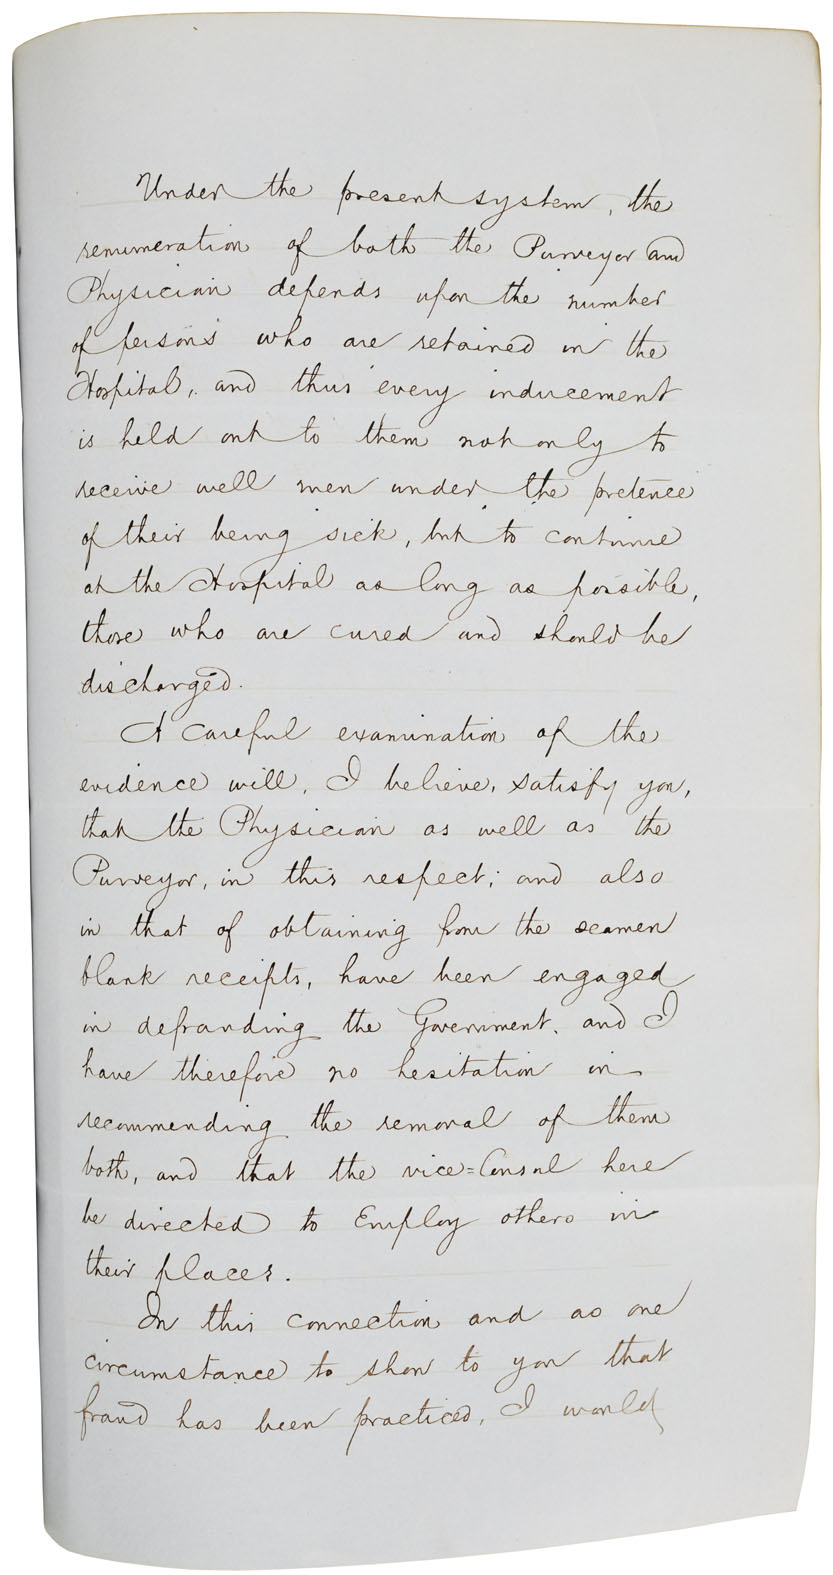 Under the present system, the
renumeration of both the Purveyor and
Physician depends upon the number
of persons who are retained in the
Hospital, and thus every inducement
is held out to them not only to
receive well men under the pretence
of their being sick, but to continue
at the Hospital as long as possible,
those who are cured and should be
discharged.
A careful examination of the
evidence will, I believe, satisfy you,
that the Physician as well as the
Purveyor, in this respect; and also
in that of obtaining from the seamen
blank receipts, have been engaged
in defrauding the Government, and I
have therefore no hesitation in
recommending the removal of them
both, and that the vice=Consul here
be directed to Employ others in
their places.
In this connection and as one
circumstance to show to you that
fraud has been practiced, I would